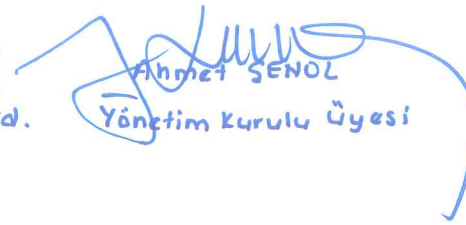 Ahmet ŞENOL
d. Yönetim Kurulu Üyesi